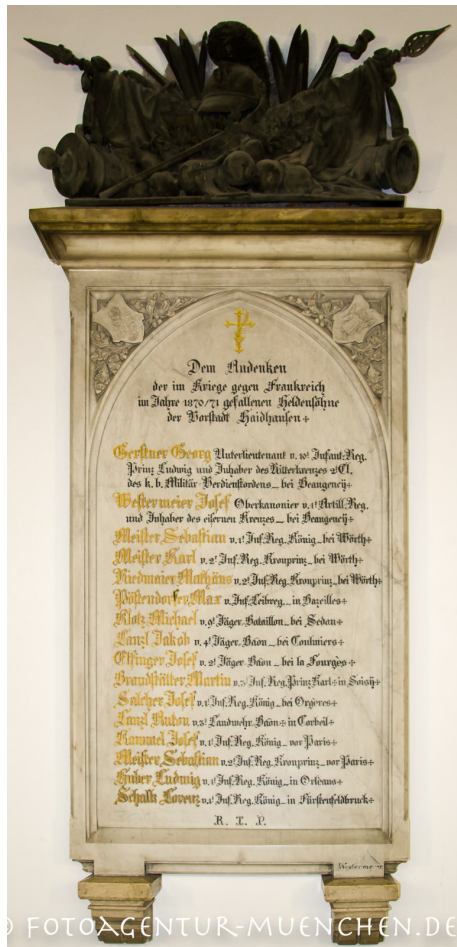 Dem Andenken
der im Kriege gegen Frankreich
im Jahre 1870/71 gefallenen Heldensöhne
der Vorstadt Haidhausen+
Gerstner Georg Unterlieutenant v. 10t Infant. Reg.
Prinz Ludwig und Inhaber des Ritterkreuzes 2t Cl.
des k. b. Militär Verdienstordens_ bei Beaugency+
Westermeier Josef Oberkanonier v. 1t Artill. Reg.
und Inhaber des eisernen Kreuzes_ bei Beaugency+
Meister Sebastian v. 1t Inf. Reg. König_ bei Wörth+
Meister Karl v. 2t Inf. Reg. Kronprinz_ bei Wörth+
Riedmaier Mathäus v. 2t Inf. Reg. Kronprinz_ bei Wörth+
Pöstendorfer Max v. Inf. Leibreg._ in Bazeilles+
Klotz Michael v. 9t Jäger-Bataillon_ bei Sedan+
Lanzl Jakob v. 4t Jäger-Baon_ bei Coulmiers+
Elfinger Josef v. 2t Jäger-Baon_ bei la Fourges+
Brandstätter Martin v. 3t Inf. Reg. Prinz Karl+ in Soisy+
Salcher Josef v. 1t Inf. Reg. König_ bei Orgeres+
Lanzl Anton v. 3t Landwehr-Baon+ in Corbeil+
Kammel Josef v. 1t Inf. Reg. König_ vor Paris+
Meister Sebastian v. 2t Inf. Reg. Kronprinz_ vor Paris+
Huber Ludwig v. 1t Inf. Reg. König_ in Orleans+
Schalk Lorenz v. 1t Inf. Reg. König_ in Fürstenfeldbruck+
R. I. P.
© FOTOAGENTUR-MUENCHEN.DE